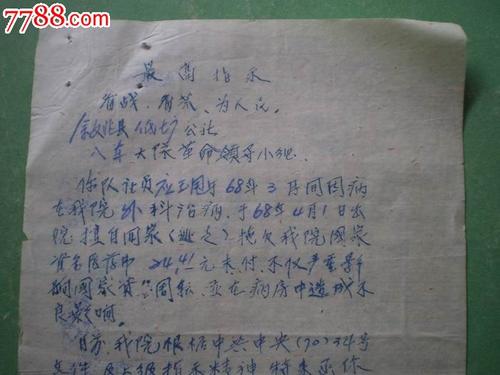 7788.com
最高指示
备战、备荒、为人民。
公社
八年大队革命领导小组:
你队社员应玉国于68年3月间因病
在我院外科治病,于68年4月1日出
院擅自回家(逃走)拖欠我院国家
资金医药费24.41元未付,不仅严重影
响国家资金周转,并在病房中造成不
良影响。
目前,我院根据中共中央(70)34号
文件及上级指示精神,特来函你